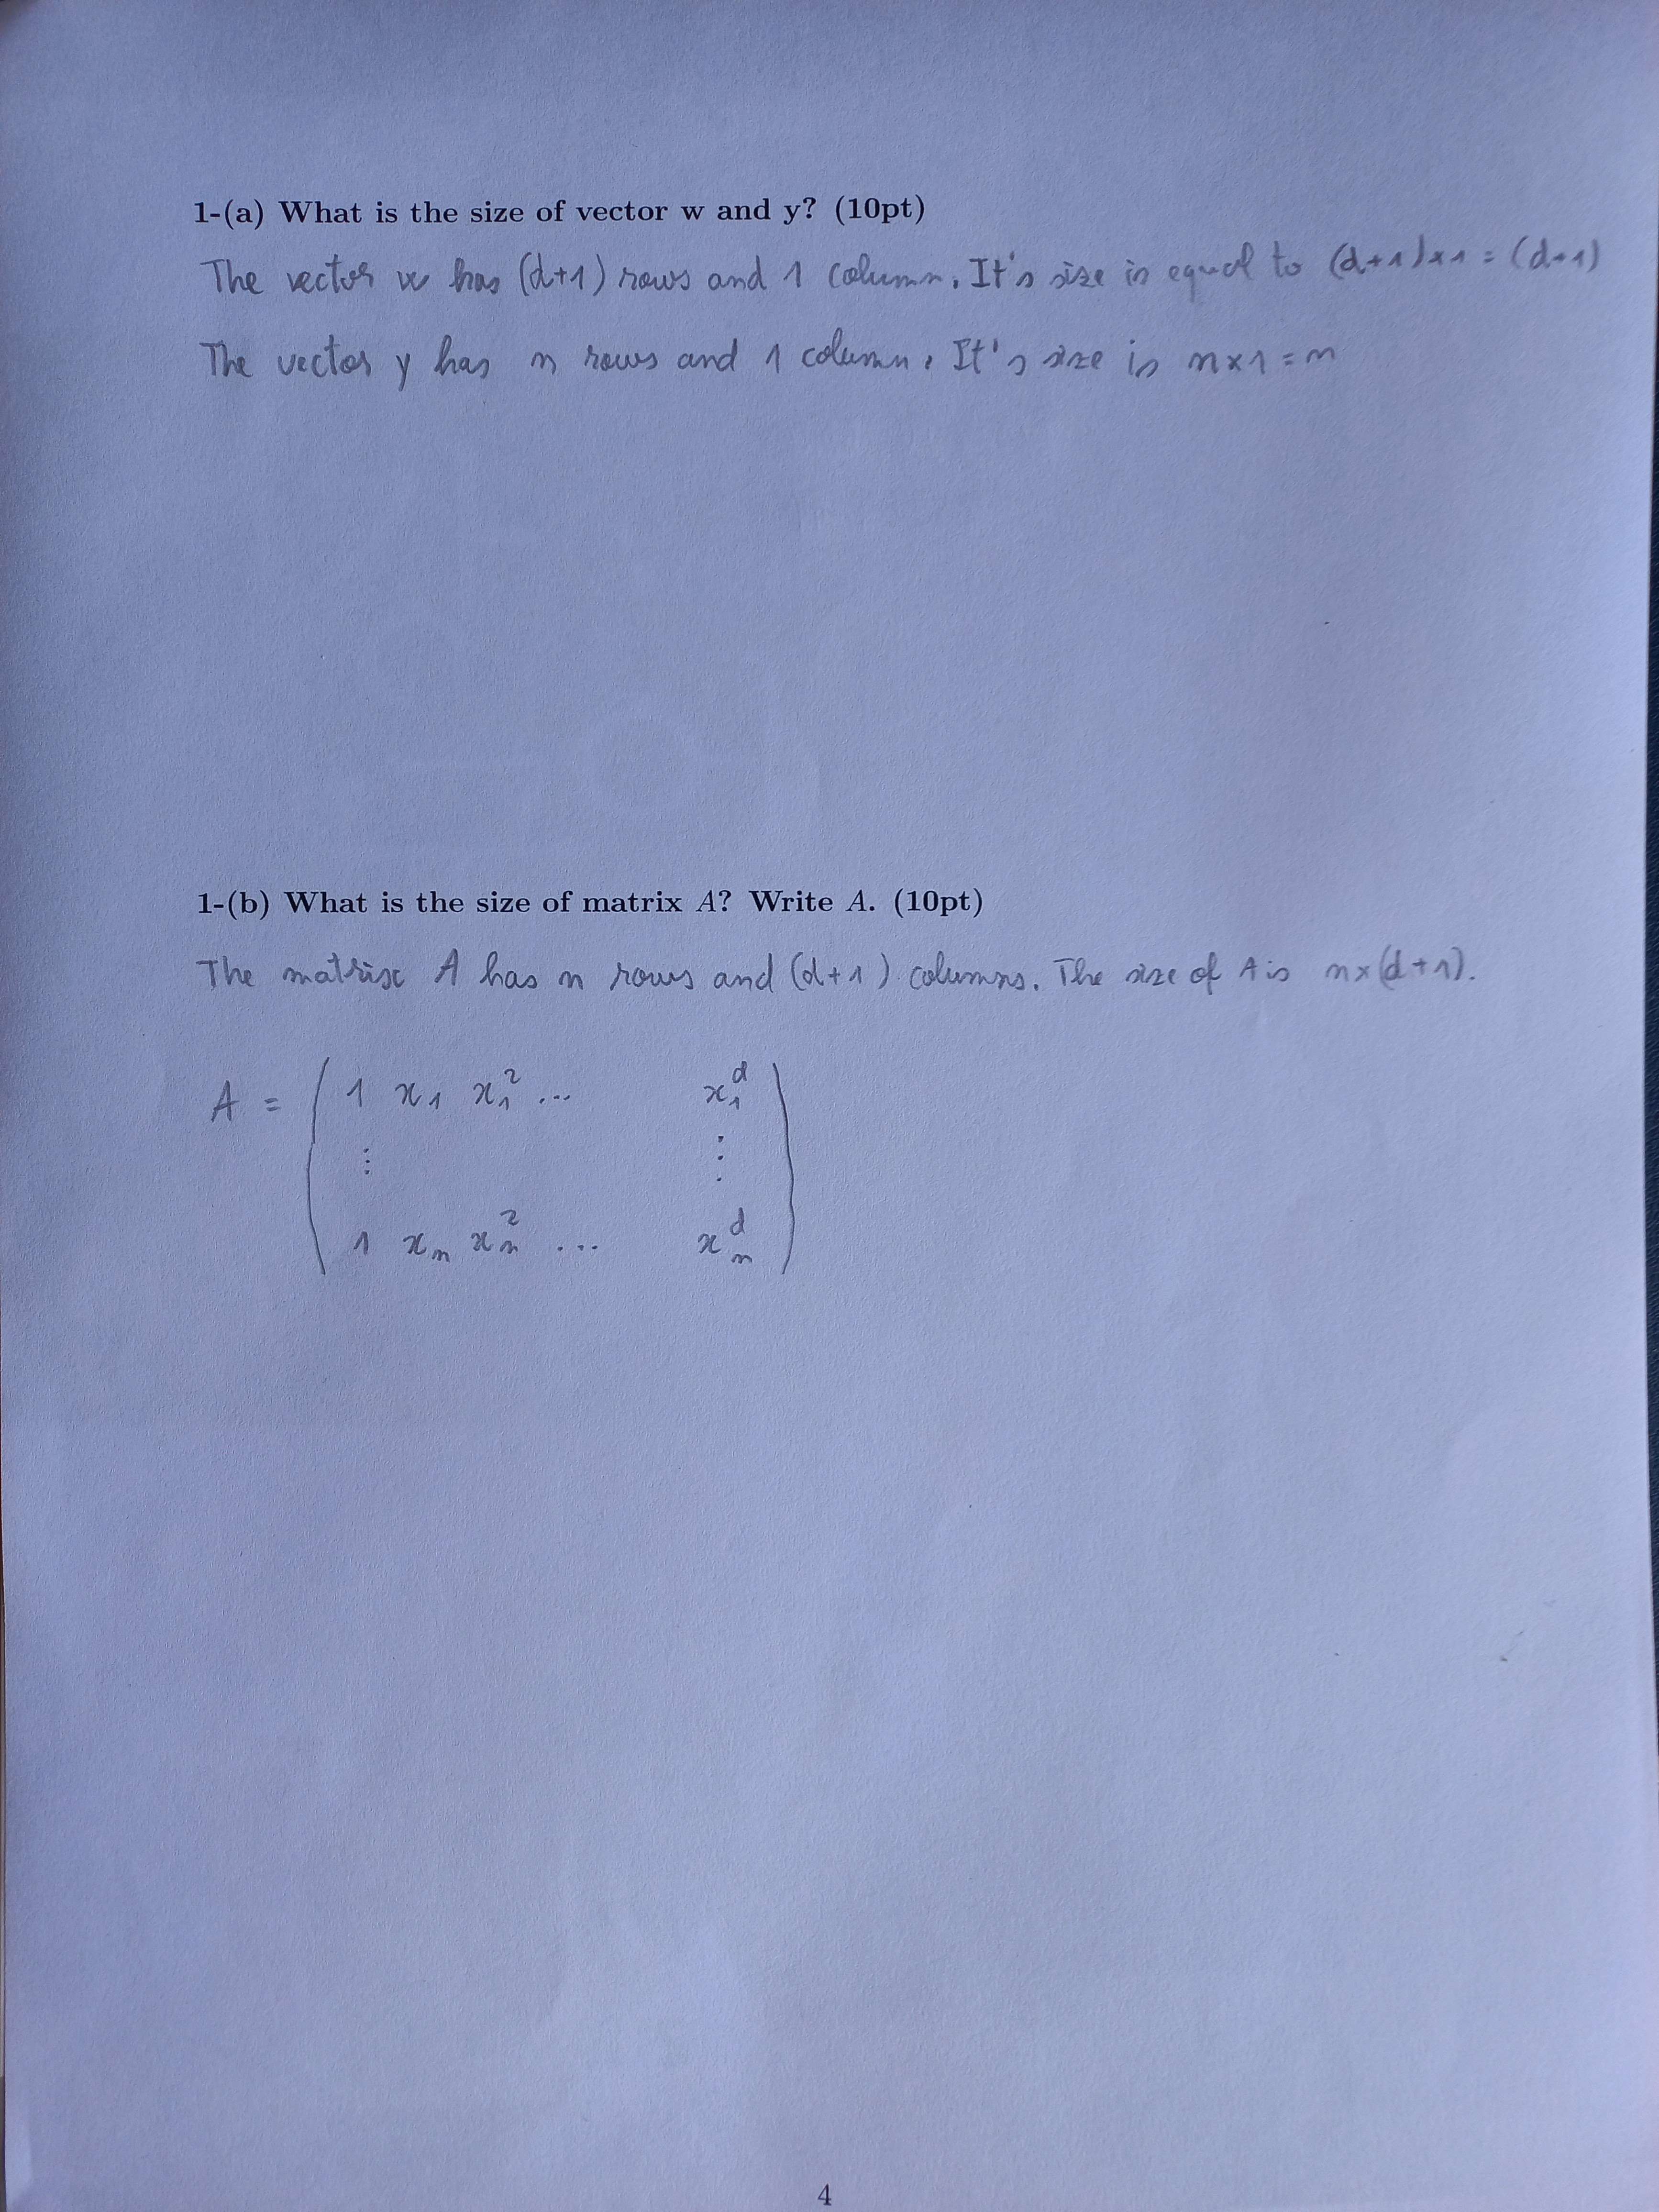 1-(a) What is the size of vector w and y? (10pt)
The vector w has (d+1) rows and 1 column. It's size is equal to (d+1)x1 = (d+1)
The vector y has n rows and 1 column. It's size is n×1 = n
1-(b) What is the size of matrix A? Write A. (10pt)
The matrix A has n rows and (d+1) columns. The size of A is n×(d+1).
A = ( 1 x₁ x₁² ... x₁ᵈ )
⋮ ⋮
1 xₙ xₙ² ... xₙᵈ
4